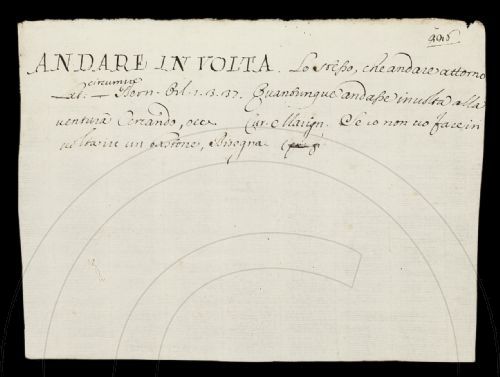 ANDARE IN VOLTA. Lo stesso, che andare attorno
circumire
Lat. — Bern. Orl. 1. 3. 37. Quantunque andasse in volta alla
ventura Cercando, ecc. Car. Mattacc. Se io non vo face in
volta un pastone, Bisogna